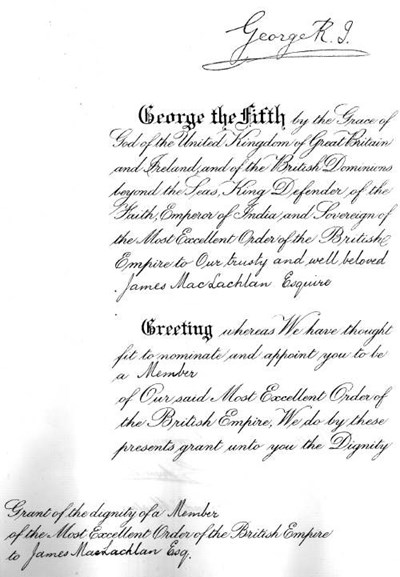 George R. I.
George the Fifth by the Grace of
God of the United Kingdom of Great Britain
and Ireland, and of the British Dominions
beyond the Seas, King Defender of the
Faith, Emperor of India and Sovereign of
the Most Excellent Order of the British
Empire to Our trusty and well beloved
James MacLachlan Esquire
Greeting whereas We have thought
fit to nominate and appoint you to be
a Member
of Our said Most Excellent Order of
the British Empire, We do by these
presents grant unto you the Dignity
Grant of the dignity of a Member
of the Most Excellent Order of the British Empire
to James MacLachlan Esq.